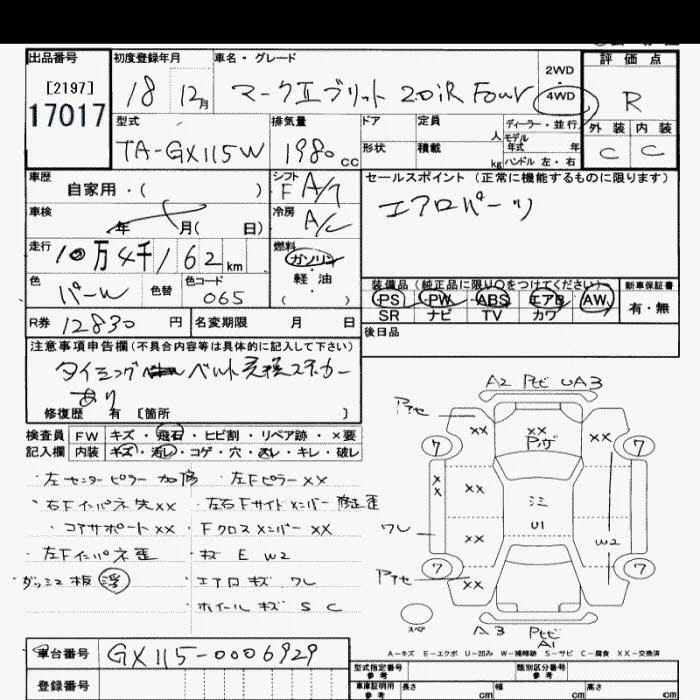 出品番号 初度登録年月 車名・グレード 2WD 4WD 評価点
[2197]
17017 18 12月 マークⅡブリット 2.0iR Four R
型式 排気量 ドア 定員 人 ディーラー・並行 外装 内装
モデル年式 年
TA-GX115W 1980 CC 形状 積載 kg ハンドル 左・右 C C
車歴 自家用・( ) シフト F A/T セールスポイント(正常に機能するものに限ります)
車検 年 月( 日) 冷房 A/C エアロパーツ
走行 10万4千162km 燃料 ガソリン・軽油 ( )
色 パールW 色替 色コード 065 装備品(純正品に限り○をつけてください) 新車保証書
PS PW ABS エアB AW 有・無
SR ナビ TV カワ
R券 12830 円 名変期限 月 日 後日品
注意事項申告欄(不具合内容等は具体的に記入して下さい)
タイミング ベルト交換ステッカー
あり
修復歴 有 [箇所 ]
検査員 FW キズ・飛石・ヒビ割・リペア跡・×要
記入欄 内装 キズ・汚レ・コゲ・穴・スレ・キレ・破レ
・左センターピラー 加修 ・左Fピラーxx
・右Fインパネ 先xx ・左右Fサイドメンバー 修正歪
・コアサポートxx ・Fクロスメンバーxx
・左Fインパネ歪 ・キズ E W2
・ダッシュ板 浮 ・エアロキズ ワレ
・ホイールキズ S C
A2 U A3
xx xx xx
7 7
x x xx
U1
ワレ xx W2
7 7
xx
スペア
A3 A1
A-キズ E-エクボ U-凹み W-補修跡 S-サビ C-腐食 XX-交換済
車台番号 GX115-0006929
登録番号
型式指定番号 参考 類別区分番号 参考
車庫証明用 参考 長さ cm 幅 cm 高さ cm